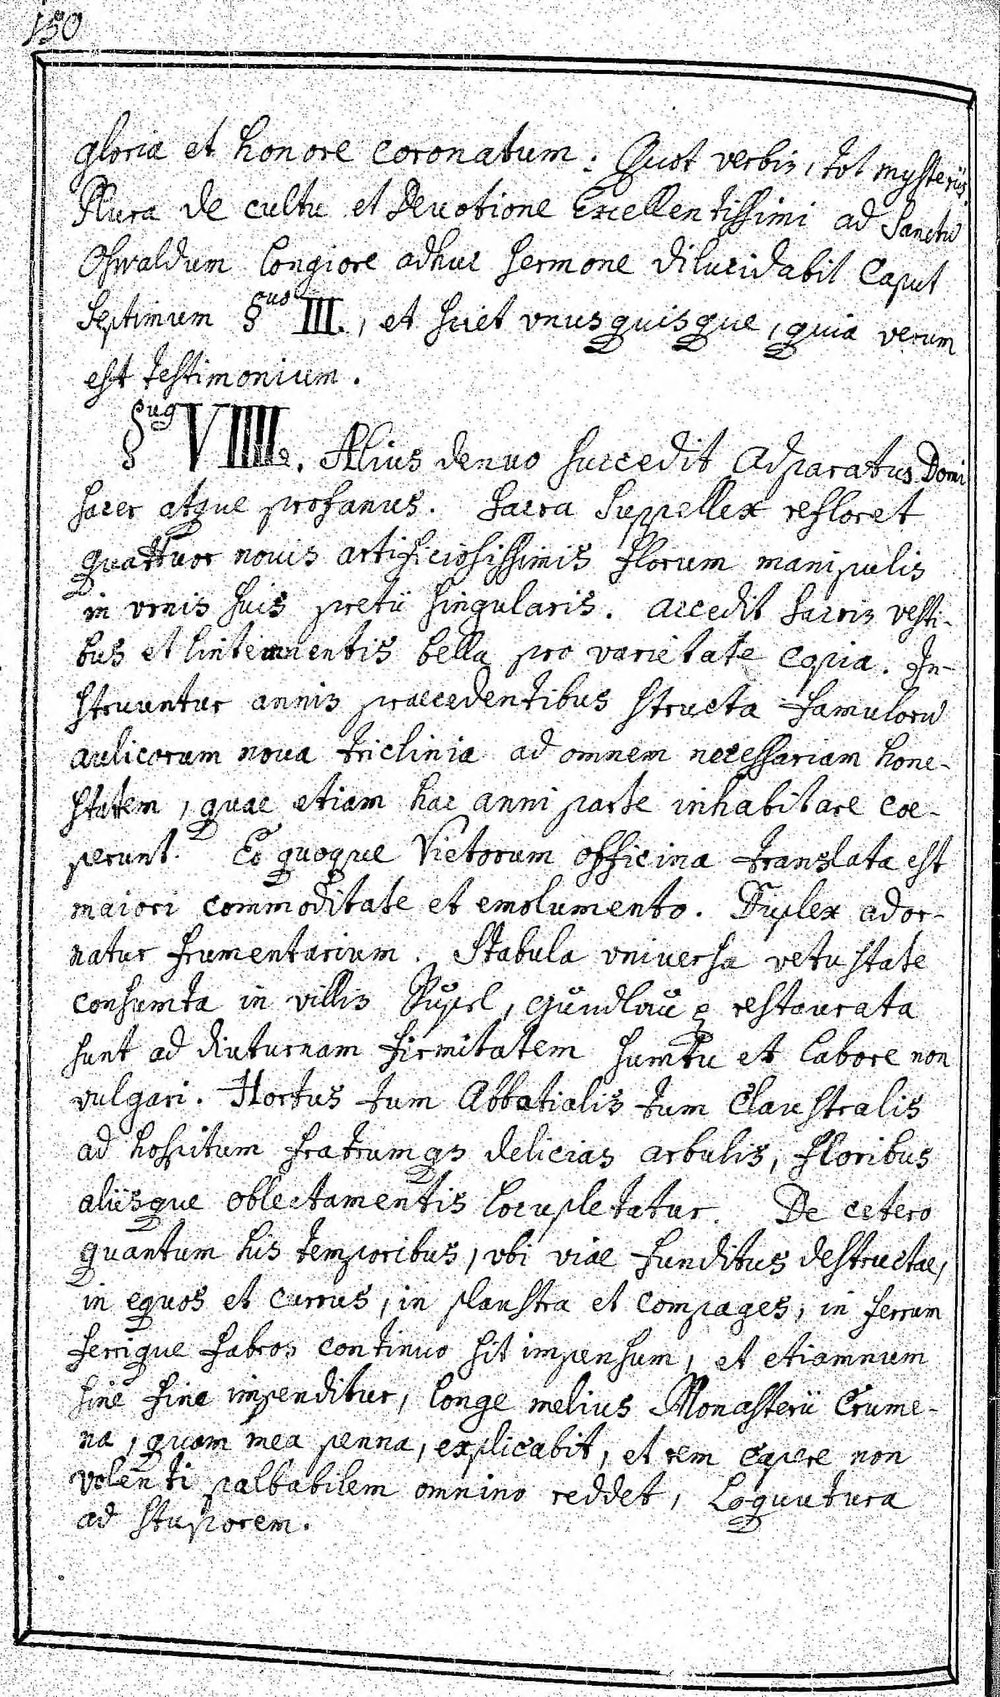 150
gloria et honore coronatum. Quot verbis, tot mysterijs.
Plura de cultu et Deuotione Excellentissimi ad Sanctũ
Oswaldum longiore adhuc sermone dilucidabit Caput
Septimum §quo III., et sciet vnusquisque, quia verum
est testimonium.
§ug VIIII. Alius denuo succedit Adparatus Domi
sacer atque profanus. Sacra Suppellex refloret
quattuor nouis artificiosissimis florum manipulis
in vrnis suis pretii singularis. accedit sacris vesti-
bus et linteamentis bella pro varietate copia. In-
struuntur annis praecedentibus structa famulorũ
aulicorum noua triclinia ad omnem necessariam hone-
statem, quae etiam hac anni parte inhabitare coe-
perunt. Eo quoque Vietorum officina translata est
maiori commoditate et emolumento. Duplex ador-
natur frumentarium. Stabula vniuersa vetustate
consumta in villis restaurata
sunt ad diuturnam firmitatem sumtu et labore non
vulgari. Hortus tum Abbatialis tum Claustralis
ad hospitum fratrumqs delicias arbulis, floribus
aliisque oblectamentis locupletatur. De cetero
quantum his temporibus, vbi viae funditus destructae,
in equos et currus, in plaustra et compages, in ferrum
ferrique fabros continuo sit impensum, et etiamnum
sine fine impenditur, longe melius Monasterii Crume-
na, quam mea penna, explicabit, et rem capere non
volenti palbabilem omnino reddet, loquutura
ad stuporem.